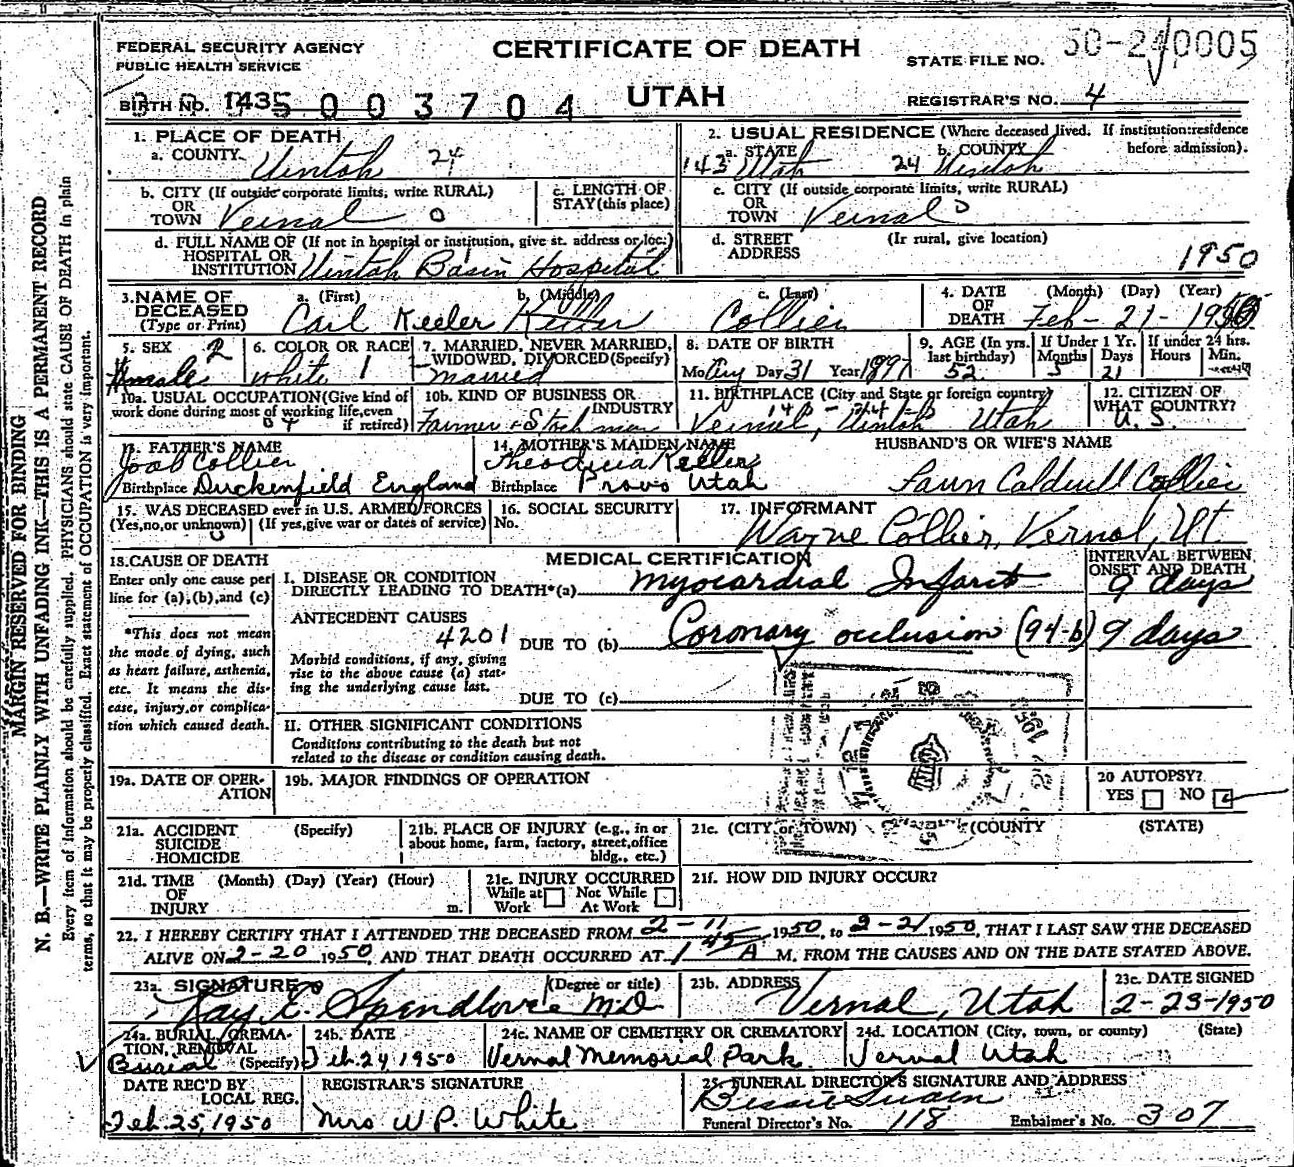 FEDERAL SECURITY AGENCY
PUBLIC HEALTH SERVICE
CERTIFICATE OF DEATH
UTAH
STATE FILE NO. 50-240005
BIRTH NO. 1435 003704
REGISTRAR'S NO. 4
1. PLACE OF DEATH
a. COUNTY Uintah 24
2. USUAL RESIDENCE (Where deceased lived. If institution:residence before admission).
a. STATE 143 Utah
b. COUNTY 24 Uintah
b. CITY (If outside corporate limits, write RURAL) OR TOWN Vernal 0
c. LENGTH OF STAY (this place)
c. CITY (If outside corporate limits, write RURAL) OR TOWN Vernal
d. FULL NAME OF (If not in hospital or institution, give st. address or loc.) HOSPITAL OR INSTITUTION Uintah Basin Hospital
d. STREET ADDRESS (If rural, give location)
1950
3. NAME OF DECEASED (Type or Print)
a. (First) Carl Keeler
b. (Middle) Keller
c. (Last) Collier
4. DATE OF DEATH (Month) (Day) (Year) Feb - 21 - 1950
5. SEX 2 male
6. COLOR OR RACE white 1
7. MARRIED, NEVER MARRIED, WIDOWED, DIVORCED (Specify) married
8. DATE OF BIRTH Mo Aug Day 31 Year 1897
9. AGE (In yrs. last birthday) 52
If Under 1 Yr. Months 5 Days 21
If under 24 hrs. Hours Min.
10a. USUAL OCCUPATION (Give kind of work done during most of working life, even if retired)
10b. KIND OF BUSINESS OR INDUSTRY
Farmer & Stockman
11. BIRTHPLACE (City and State or foreign country) Vernal, Uintah Utah
12. CITIZEN OF WHAT COUNTRY? U.S.
13. FATHER'S NAME Joab Collier
Birthplace Duckenfield England
14. MOTHER'S MAIDEN NAME Theodicia Keeler
Birthplace Provo Utah
HUSBAND'S OR WIFE'S NAME
Fawn Caldwell Collier
15. WAS DECEASED ever in U.S. ARMED FORCES (Yes, no, or unknown) (If yes, give war or dates of service)
16. SOCIAL SECURITY No.
17. INFORMANT
Wayne Collier, Vernal, Ut.
18. CAUSE OF DEATH
Enter only one cause per line for (a), (b), and (c)
MEDICAL CERTIFICATION
INTERVAL BETWEEN ONSET AND DEATH
I. DISEASE OR CONDITION DIRECTLY LEADING TO DEATH*(a) myocardial Infarct 9 days
ANTECEDENT CAUSES
4201 DUE TO (b) Coronary occlusion (94-b) 9 days
Morbid conditions, if any, giving rise to the above cause (a) stating the underlying cause last.
DUE TO (c)
*This does not mean the mode of dying, such as heart failure, asthenia, etc. It means the disease, injury, or complication which caused death.
II. OTHER SIGNIFICANT CONDITIONS
Conditions contributing to the death but not related to the disease or condition causing death.
19a. DATE OF OPERATION
19b. MAJOR FINDINGS OF OPERATION
20 AUTOPSY?
YES NO
21a. ACCIDENT SUICIDE HOMICIDE (Specify)
21b. PLACE OF INJURY (e.g., in or about home, farm, factory, street, office bldg., etc.)
21c. (CITY or TOWN) (COUNTY (STATE)
21d. TIME OF INJURY (Month) (Day) (Year) (Hour) m.
21e. INJURY OCCURRED
While at Work Not While At Work
21f. HOW DID INJURY OCCUR?
22. I HEREBY CERTIFY THAT I ATTENDED THE DECEASED FROM 2-11 1950, to 2-21 1950, THAT I LAST SAW THE DECEASED
ALIVE ON 2-20 1950, AND THAT DEATH OCCURRED AT 1 45 A M. FROM THE CAUSES AND ON THE DATE STATED ABOVE.
23a. SIGNATURE (Degree or title) Ray E. Spendlove MD
23b. ADDRESS Vernal, Utah
23c. DATE SIGNED 2-23-1950
24a. BURIAL, CREMATION, REMOVAL (Specify) Burial
24b. DATE Feb. 24, 1950
24c. NAME OF CEMETERY OR CREMATORY Vernal Memorial Park
24d. LOCATION (City, town, or county) (State) Vernal Utah
DATE REC'D BY LOCAL REG. Feb. 25, 1950
REGISTRAR'S SIGNATURE Mrs W P. White
25. FUNERAL DIRECTOR'S SIGNATURE AND ADDRESS
Bessie Swain
Funeral Director's No. 118 Embalmer's No. 307
MARGIN RESERVED FOR BINDING
N. B.—WRITE PLAINLY WITH UNFADING INK—THIS IS A PERMANENT RECORD
Every item of information should be carefully supplied. PHYSICIANS should state CAUSE OF DEATH in plain
terms, so that it may be properly classified. Exact statement of OCCUPATION is very important.